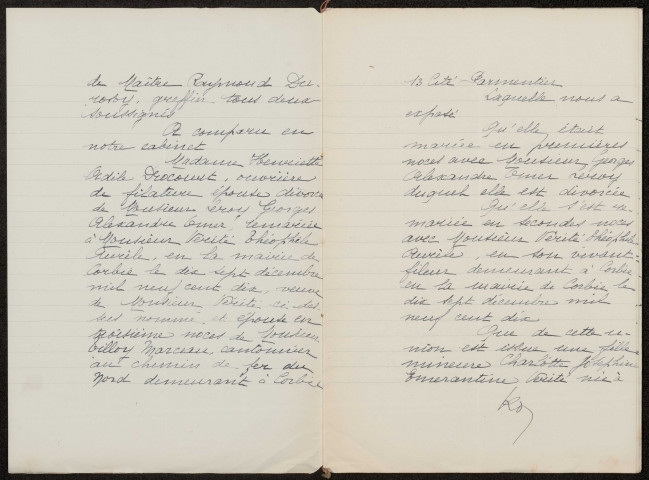 de Maître Raymond Du-
rosoy, greffier, tous deux
soussignés
A comparu en
notre cabinet
Madame Henriette
Odile Drocourt, ouvrière
de filature épouse divorcée
de Monsieur Leroy Georges
Alexandre Omer, remariée
à Monsieur Vérité Théophile
Aurèle, en la mairie de
Corbie le dix sept décembre
mil neuf cent dix, veuve
de Monsieur Vérité ci-des-
sus nommé, et épouse en
troisième noces de Monsieur
Marceau, cantonnier
aux chemin de fer du
Nord demeurant à Corbie
13 Cité Parmentier
Laquelle nous a
exposé
Qu'elle était
mariée en premières
noces avec Monsieur Georges
Alexandre Omer Leroy
duquel elle est divorcée
Qu'elle s'est re-
mariée en secondes noces
avec Monsieur Vérité Théophile
Aurèle, en son vivant
fileur demeurant à Corbie
en la mairie de Corbie le
dix sept décembre mil
neuf cent dix
Que de cette u-
nion est issue une fille
mineure Charlotte Joséphine
Emerantine Vérité née à